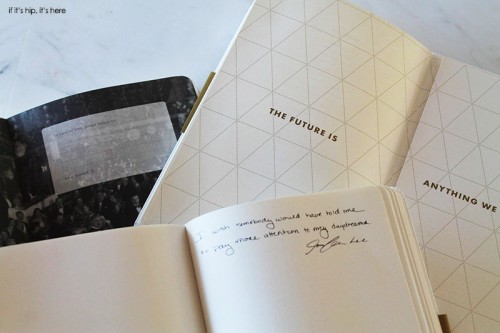 if it's hip, it's here
THE FUTURE IS
ANYTHING WE
I wish somebody would have told me
to pay more attention to my daydreams
Lee